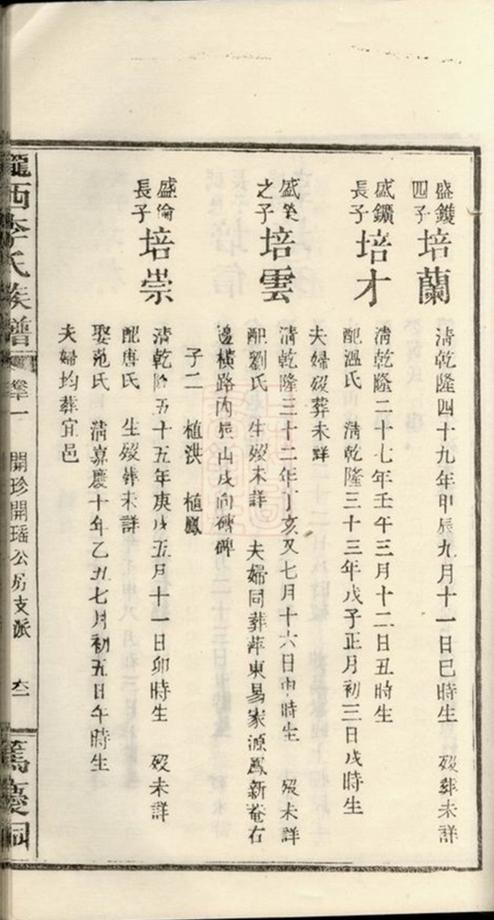 盛鑊四子 培蘭 清乾隆四十九年甲辰九月十一日巳時生 歿葬未詳
盛鑛長子 培才 清乾隆二十七年壬午三月十二日丑時生
配溫氏 清乾隆三十三年戊子正月初三日戌時生
夫婦歿葬未詳
之子 培雲 清乾隆三十二年丁亥又七月十六日申時生 歿未詳
配劉氏 生歿未詳 夫婦同葬萍東易家源鳳新菴右
邊橫路內辰山戌向磚碑
子二 植洪 植鳳
盛倫長子 培崇 清乾隆五十五年庚戌五月十一日卯時生 歿未詳
配唐氏 生歿葬未詳
娶范氏 清嘉慶十年乙丑七月初五日午時生
夫婦均葬宜邑
隴西李氏族譜 卷一 開珍開瑤公房支派 篤慶